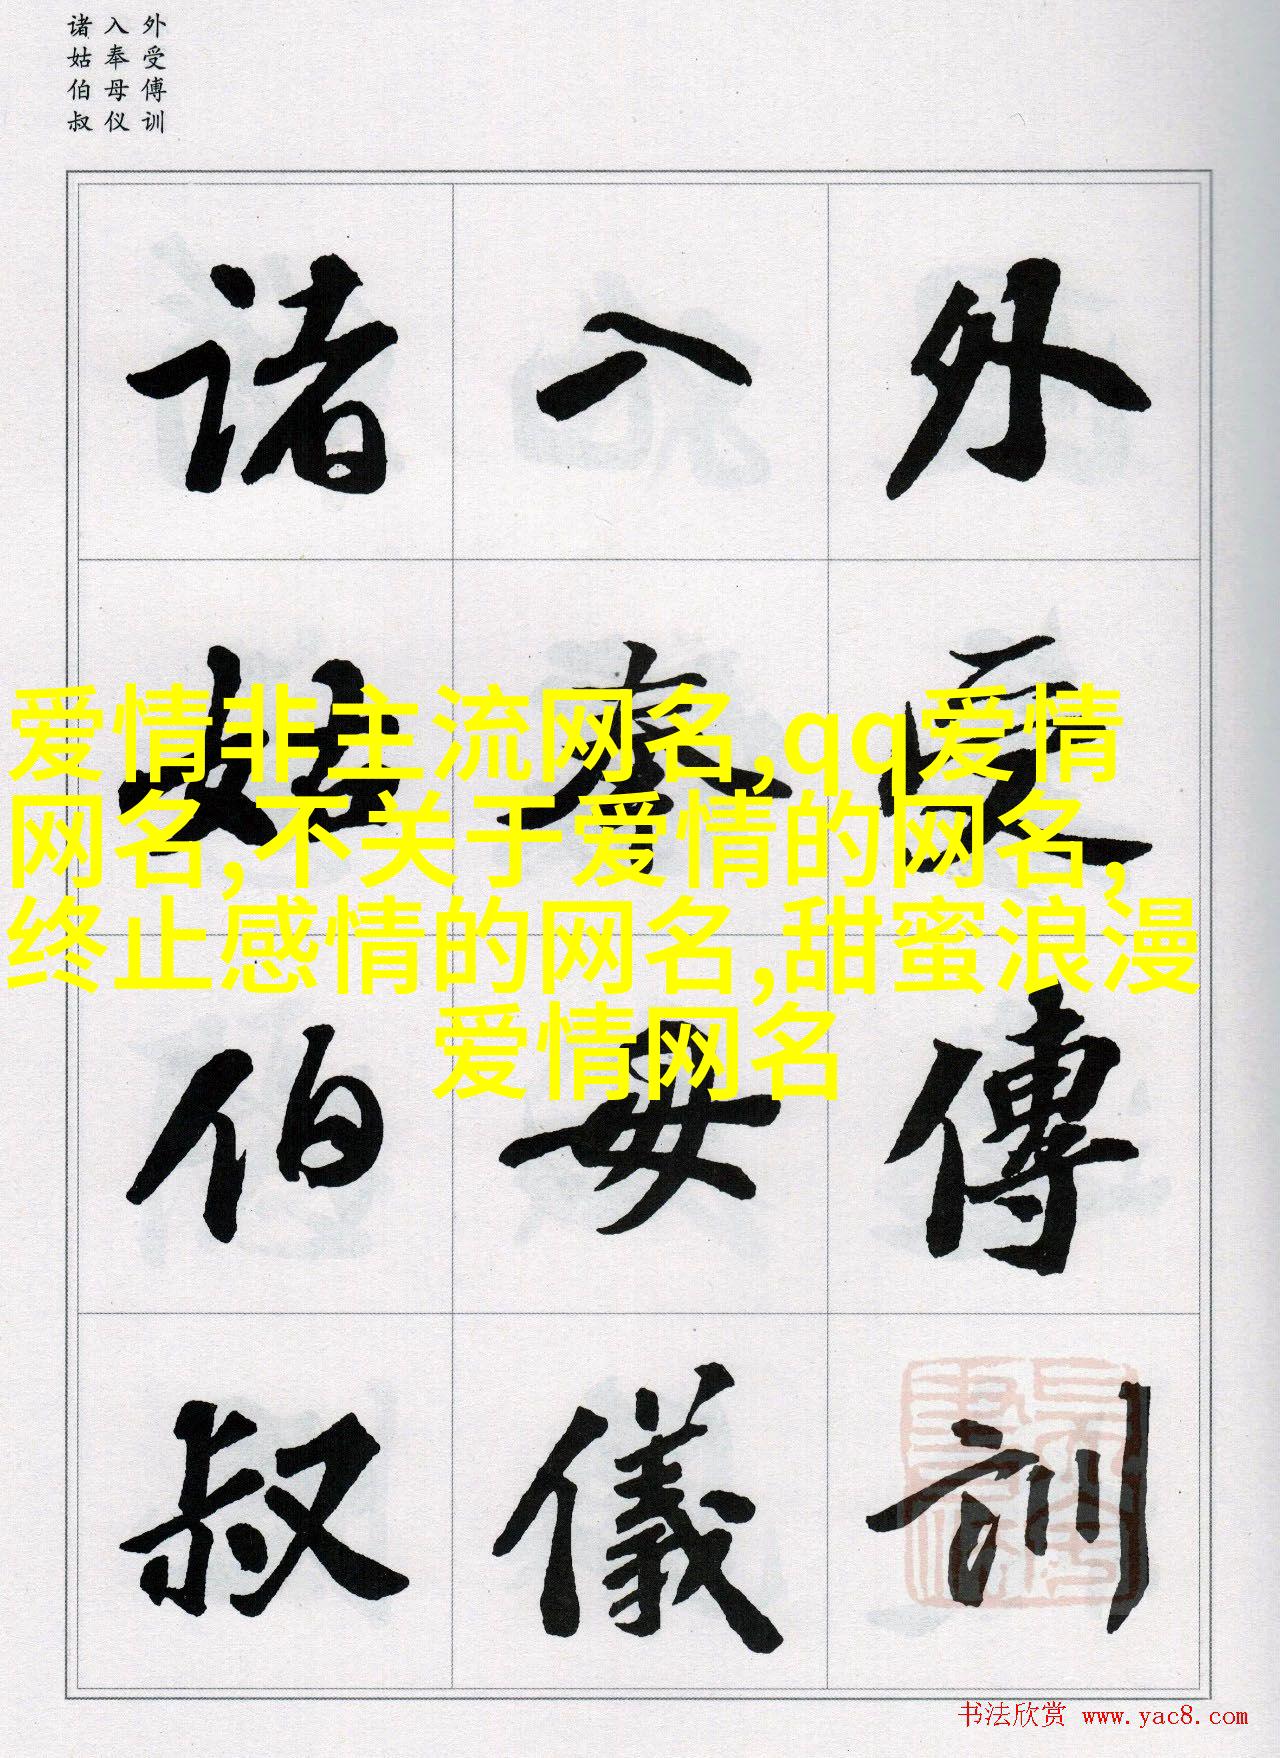 外受傅训
入奉母仪
诸姑伯叔
外受傅訓
入奉母儀
诸姑伯叔
爱情非主流网名,qq爱情
网名,不关于爱情的网名,
终止感情的网名,甜蜜浪漫
爱情网名
书法欣赏 www.yac8.com